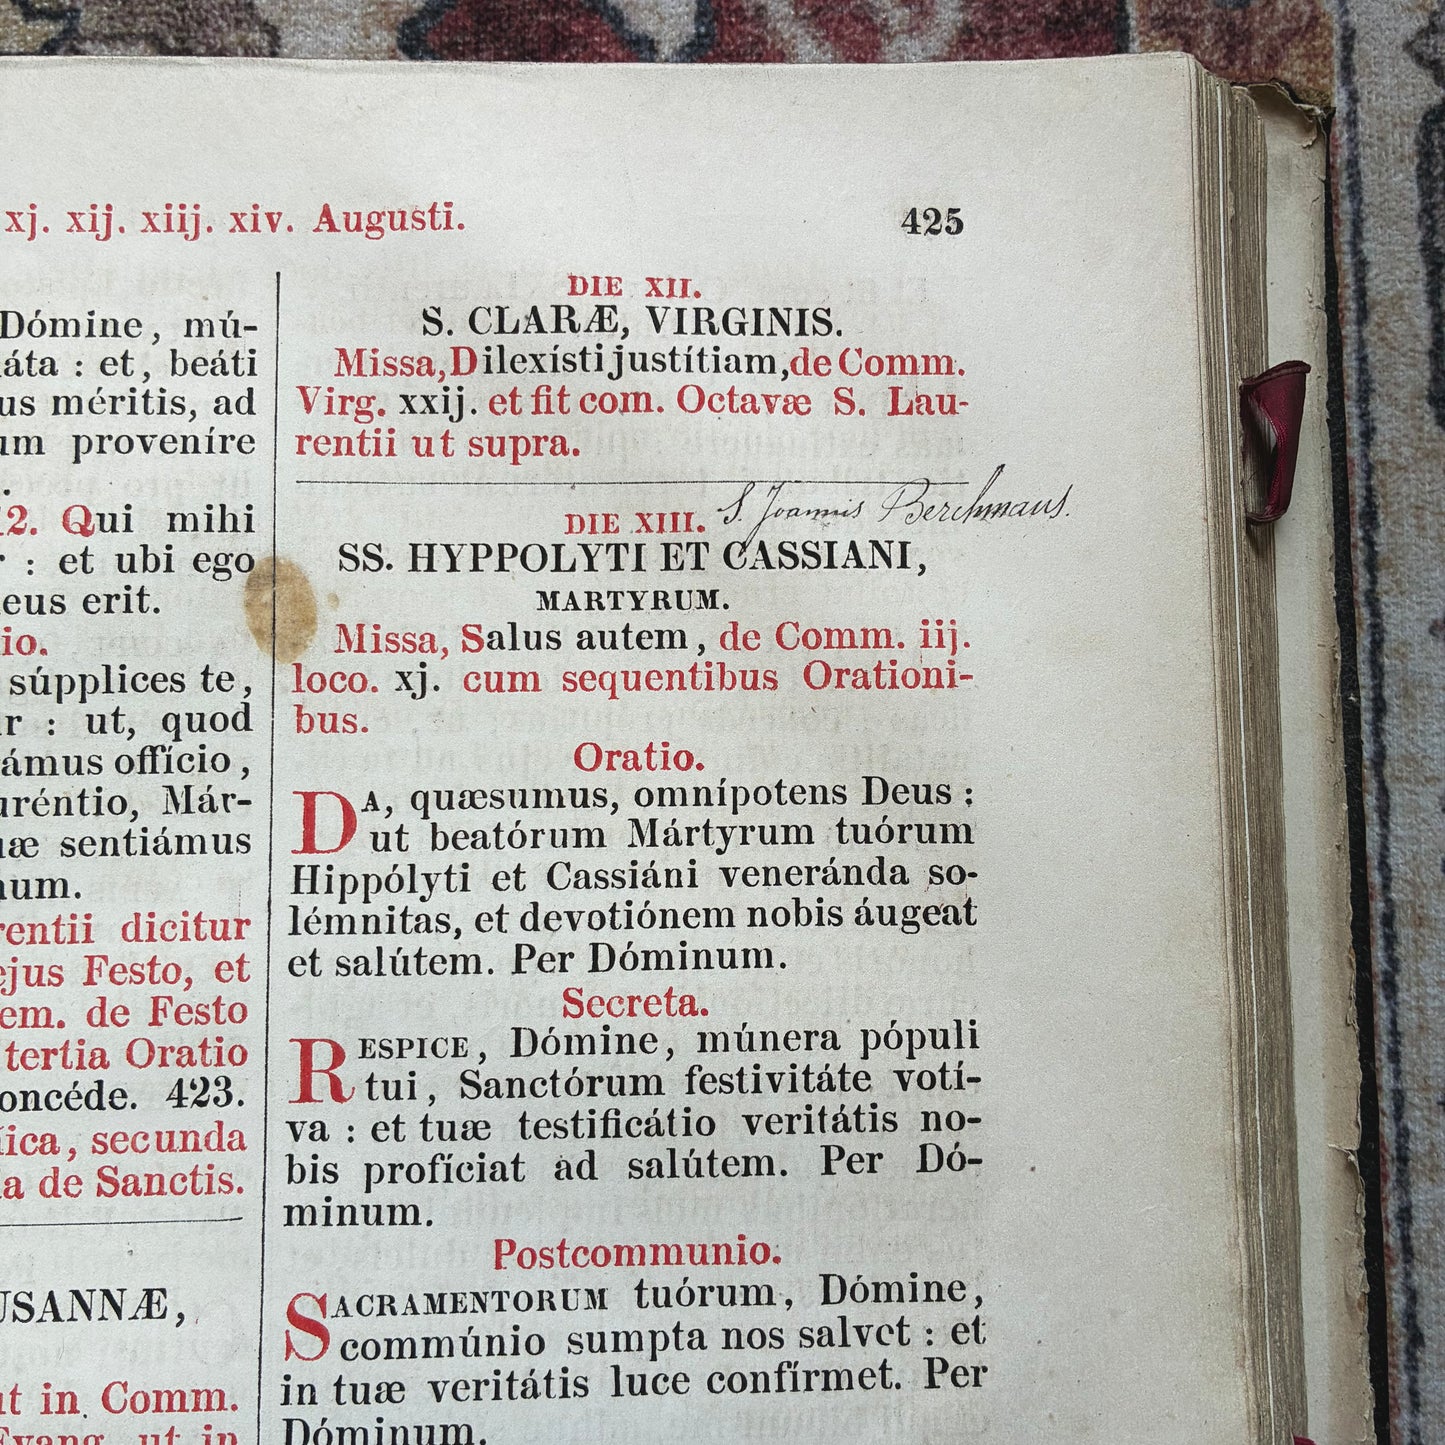 xj. xij. xiij. xiv. Augusti.
425
Dómine, mú-
et, beáti
méritis, ad
proveníre
Qui mihi
: et ubi ego
erit.
súpplices te,
: ut, quod
offício,
Már-
sentiámus
dicitur
ejus Festo, et
de Festo
tertia Oratio
423.
secunda
de Sanctis.
in Comm.
ut in
DIE XII.
S. CLARÆ, VIRGINIS.
Missa, Dilexísti justítiam, de Comm.
Virg. xxij. et fit com. Octavæ S. Lau-
rentii ut supra.
DIE XIII. S. Joannis Berchmans.
SS. HYPPOLYTI ET CASSIANI,
MARTYRUM.
Missa, Salus autem, de Comm. iij.
loco. xj. cum sequentibus Orationi-
bus.
Oratio.
DA, quæsumus, omnípotens Deus :
ut beatórum Mártyrum tuórum
Hippólyti et Cassiáni veneránda so-
lémnitas, et devotiónem nobis áugeat
et salútem. Per Dóminum.
Secreta.
RESPICE, Dómine, múnera pópuli
tui, Sanctórum festivitáte votí-
va : et tuæ testificátio veritátis no-
bis profíciat ad salútem. Per Dó-
minum.
Postcommunio.
SACRAMENTORUM tuórum, Dómine,
commúnio sumpta nos salvet : et
in tuæ veritátis luce confírmet. Per
Dóminum.